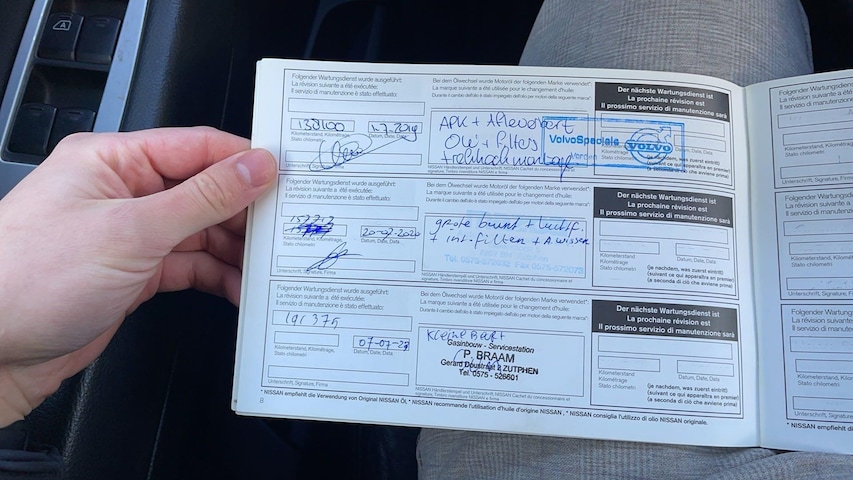 Folgender Wartungsdienst wurde ausgeführt:
La révision suivante a été exécutée:
Il servizio di manutenzione è stato effettuato:
138100
1-7-2019
Kilometerstand, Kilométrage,
Stato chilometri
Datum, Date, Data
Unterschrift, Signature, Firma
Bei dem Ölwechsel wurde Motoröl der folgenden Marke verwendet*:
La marque suivante a été utilisée pour le changement d'huile:
Durante il cambio dell'olio è stato impiegato dell'olio per motori della seguente marca*:
APK +
Olie + filter
VolvoSpecials
VOLVO
NISSAN-Händlerstempel und Unterschrift, NISSAN Cachet du concessionnaire et
signature, Timbro rivenditore NISSAN e firma
Der nächste Wartungsdienst ist
La prochaine révision est
Il prossimo servizio di manutenzione sarà
(je nachdem, was zuerst eintritt)
(suivant ce qui apparaîtra en premier)
(a seconda di ciò che avviene prima)
Folgender Wartungsdienst wurde ausgeführt:
La révision suivante a été exécutée:
Il servizio di manutenzione è stato effettuato:
20-02-2020
Kilometerstand, Kilométrage,
Stato chilometri
Datum, Date, Data
Unterschrift, Signature, Firma
Bei dem Ölwechsel wurde Motoröl der folgenden Marke verwendet*:
La marque suivante a été utilisée pour le changement d'huile:
Durante il cambio dell'olio è stato impiegato dell'olio per motori della seguente marca*:
grote beurt + luchtf.
+ int. filter +
NISSAN-Händlerstempel und Unterschrift, NISSAN Cachet du concessionnaire et
signature, Timbro rivenditore NISSAN e firma
Der nächste Wartungsdienst ist
La prochaine révision est
Il prossimo servizio di manutenzione sarà
Kilometerstand
Kilométrage
Stato chilometri
Datum, Date, Data
(je nachdem, was zuerst eintritt)
(suivant ce qui apparaîtra en premier)
(a seconda di ciò che avviene prima)
Folgender Wartungsdienst wurde ausgeführt:
La révision suivante a été exécutée:
Il servizio di manutenzione è stato effettuato:
191375
Kilometerstand, Kilométrage,
Stato chilometri
Datum, Date, Data
Unterschrift, Signature, Firma
Bei dem Ölwechsel wurde Motoröl der folgenden Marke verwendet*:
La marque suivante a été utilisée pour le changement d'huile:
Durante il cambio dell'olio è stato impiegato dell'olio per motori della seguente marca*:
Kleine
Gasinbouw - Servicestation
P. BRAAM
ZUTPHEN
Tel. 0575 - 526601
NISSAN-Händlerstempel und Unterschrift, NISSAN Cachet du concessionnaire et
signature, Timbro rivenditore NISSAN e firma
Der nächste Wartungsdienst ist
La prochaine révision est
Il prossimo servizio di manutenzione sarà
Kilometerstand
Kilométrage
Stato chilometri
Datum, Date, Data
(je nachdem, was zuerst eintritt)
(suivant ce qui apparaîtra en premier)
(a seconda di ciò che avviene prima)
* NISSAN empfiehlt die Verwendung von Original NISSAN ÖL, * NISSAN recommande l'utilisation d'huile d'origine NISSAN, * NISSAN consiglia l'utilizzo di olio NISSAN originale.
8
* NISSAN empfiehlt